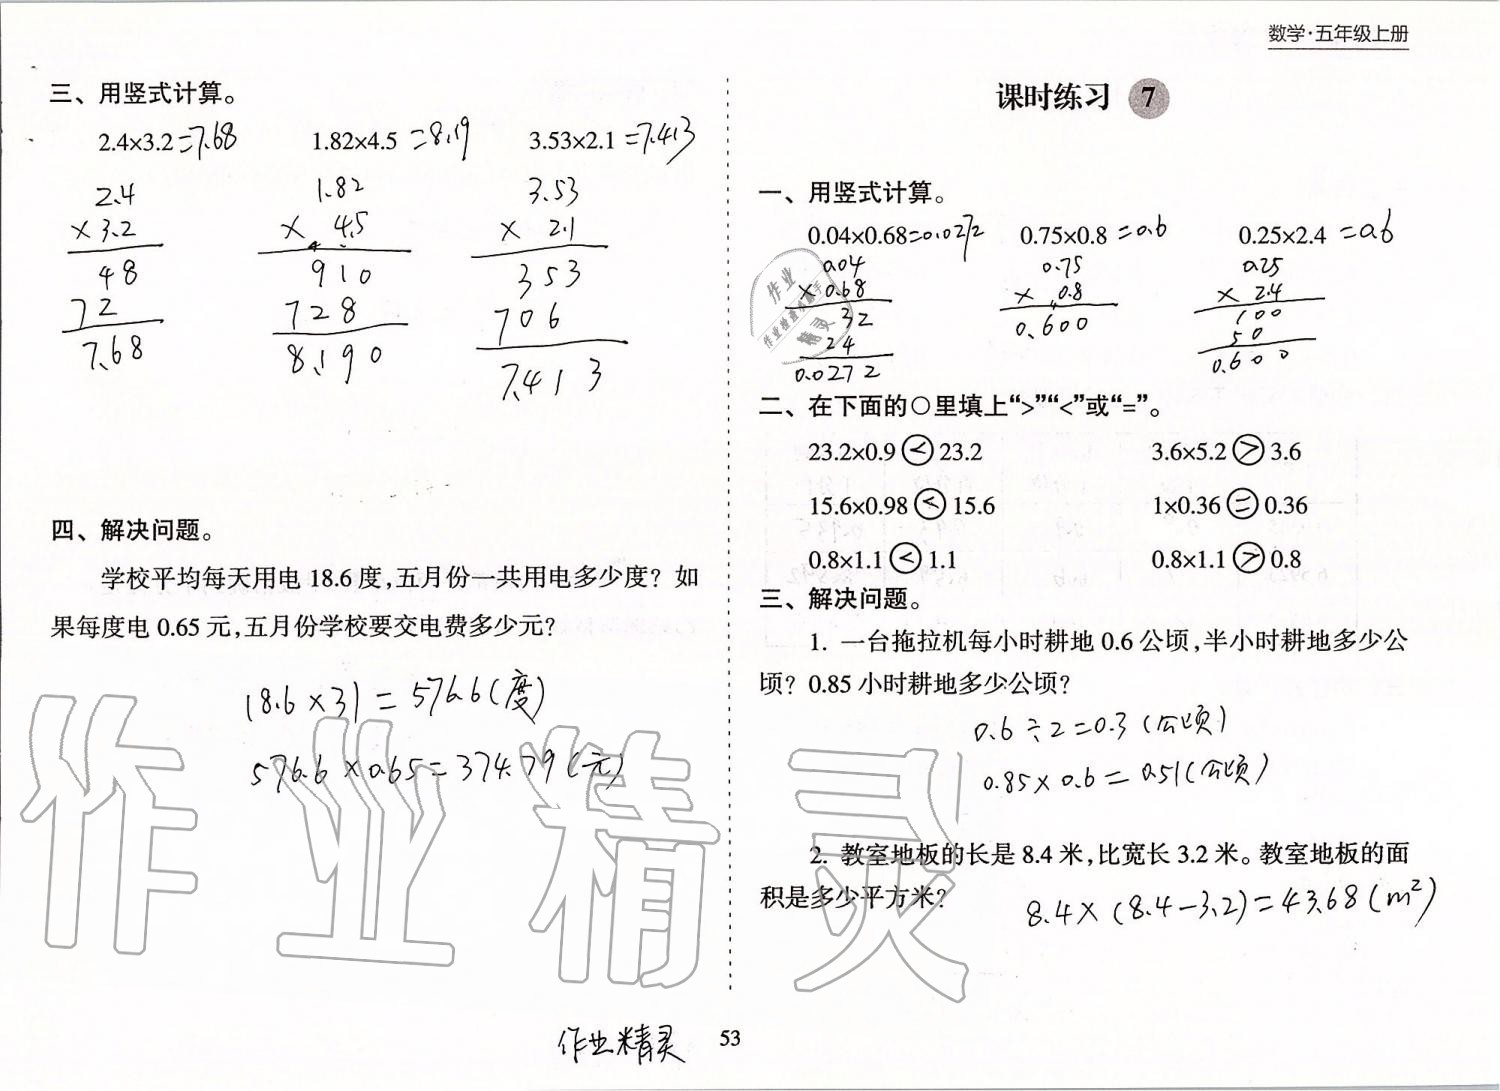 数学·五年级上册
三、用竖式计算。
2.4×3.2=7.68 1.82×4.5=8.19 3.53×2.1=7.413
2.4 1.82 3.53
×3.2 × 4.5 × 2.1
48 910 353
72 728 706
7.68 8.190 7.413
四、解决问题。
学校平均每天用电18.6度,五月份一共用电多少度?如
果每度电0.65元,五月份学校要交电费多少元?
18.6×31=576.6(度)
576.6×0.65=374.79(元)
课时练习 7
一、用竖式计算。
0.04×0.68=0.0272 0.75×0.8=0.6 0.25×2.4=0.6
0.04 0.75 0.25
×0.68 × 0.8 × 2.4
32 0.600 100
24 50
0.0272 0.600
二、在下面的○里填上“>”“<”或“=”。
23.2×0.9<23.2 3.6×5.2>3.6
15.6×0.98<15.6 1×0.36=0.36
0.8×1.1<1.1 0.8×1.1>0.8
三、解决问题。
1. 一台拖拉机每小时耕地0.6公顷,半小时耕地多少公
顷?0.85小时耕地多少公顷?
0.6÷2=0.3(公顷)
0.85×0.6=0.51(公顷)
2. 教室地板的长是8.4米,比宽长3.2米。教室地板的面
积是多少平方米?
8.4×(8.4-3.2)=43.68(m²)
作业精灵
作业
精灵
作业精灵
53